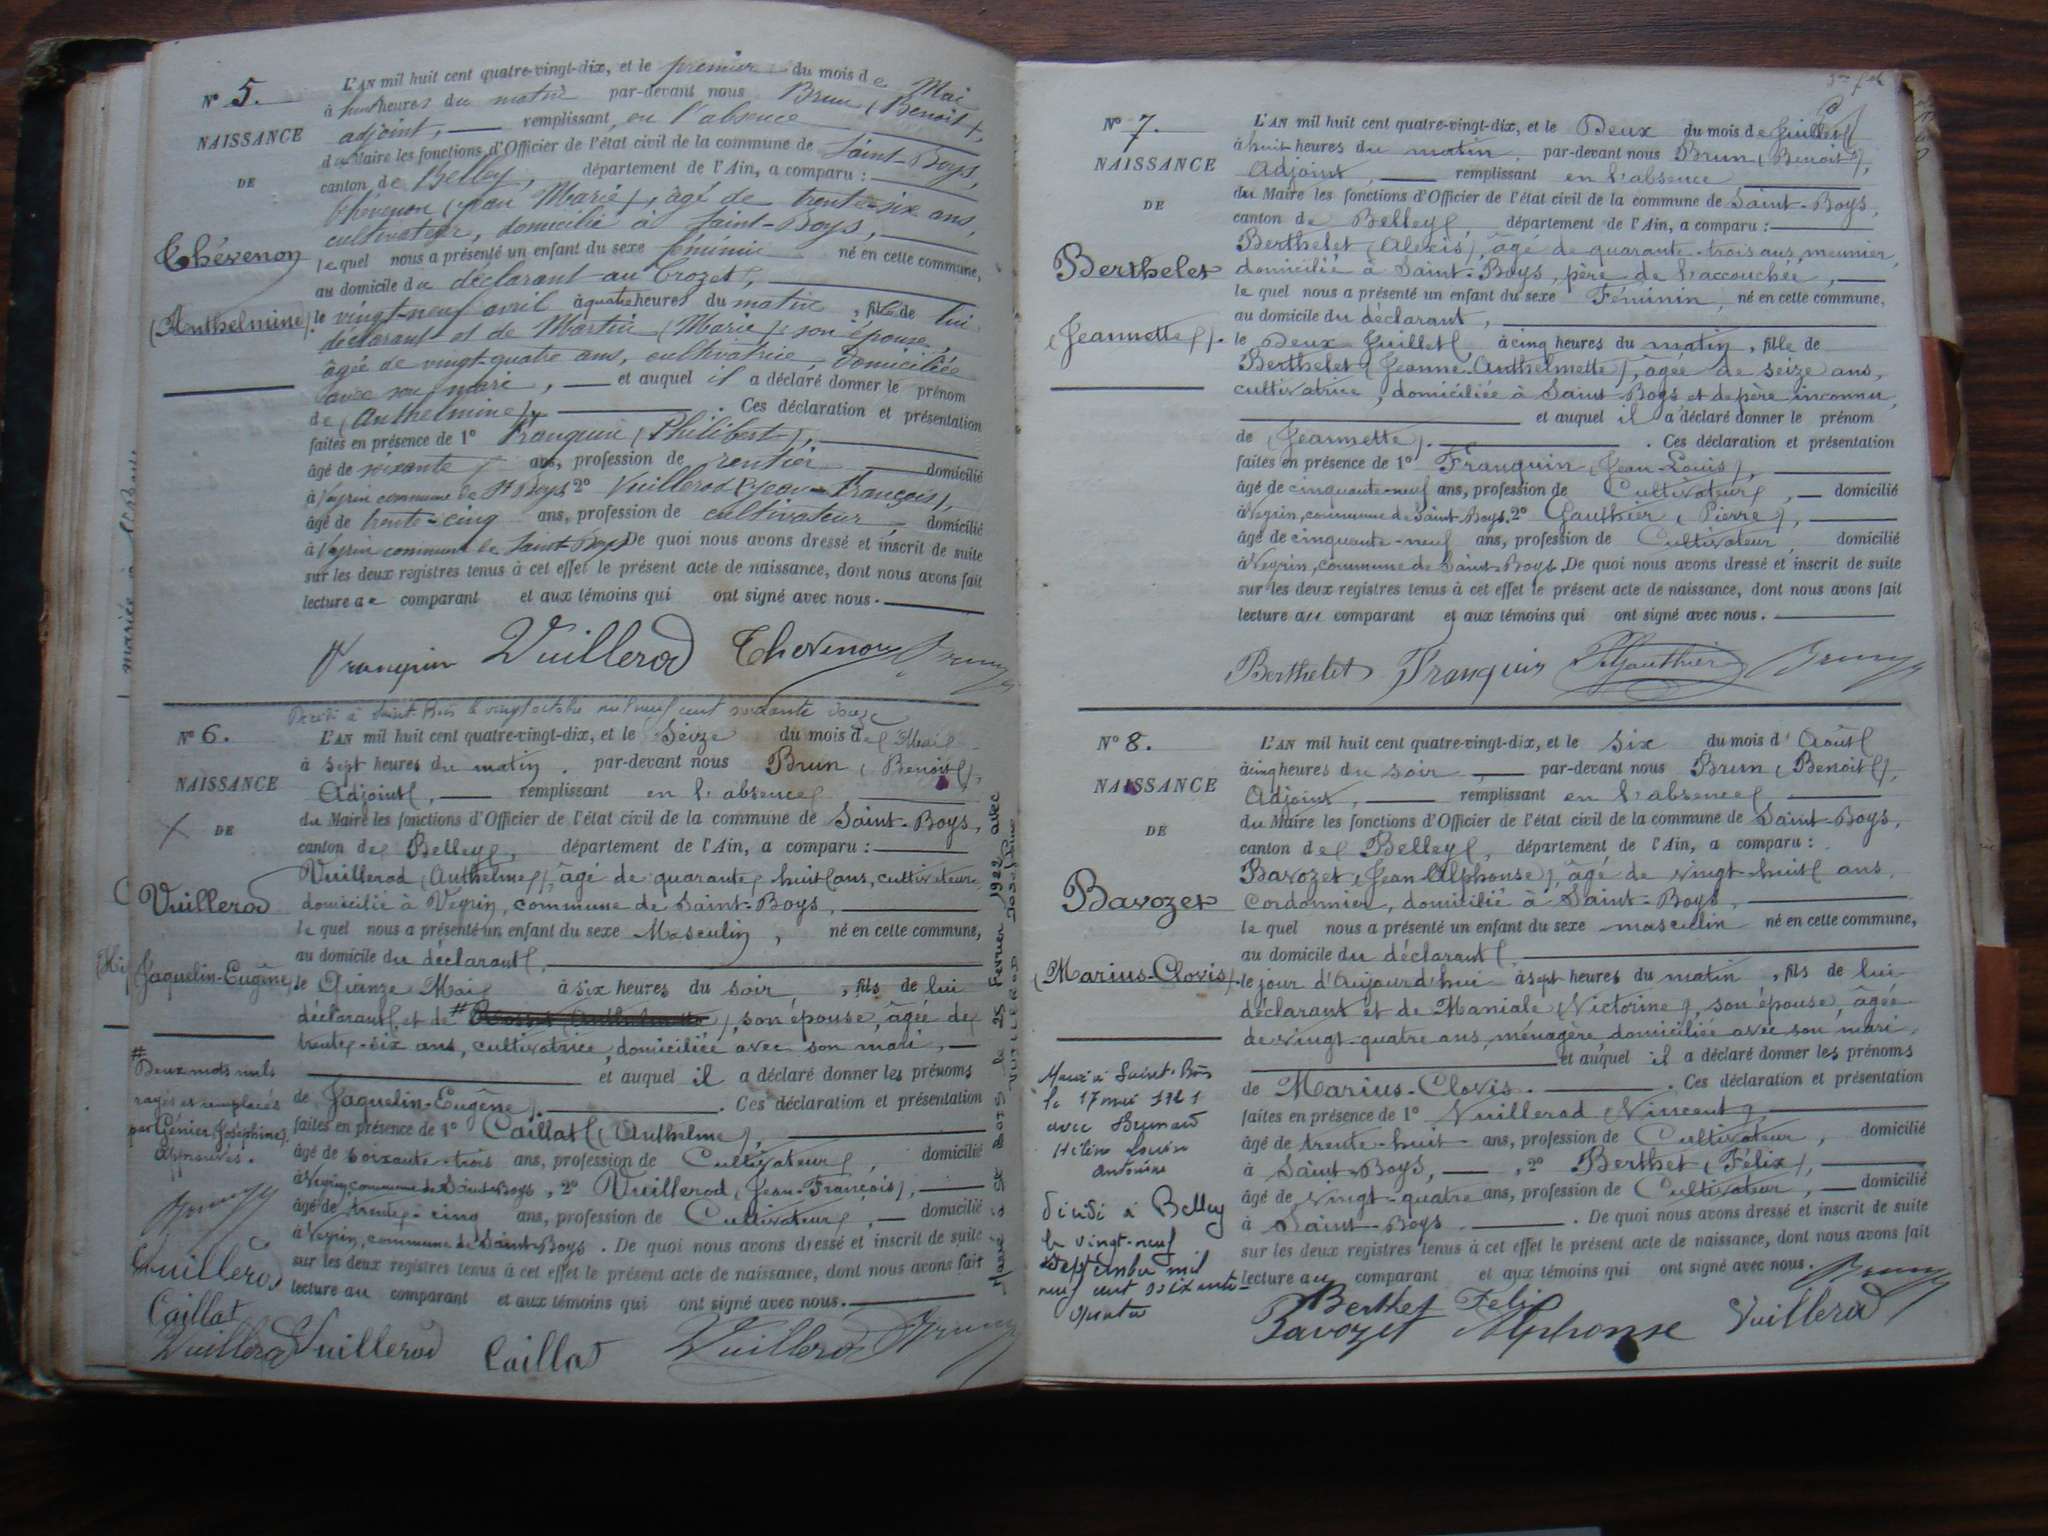 N° 5.
NAISSANCE
DE
Thévenon
(Anthelmine).
L'AN mil huit cent quatre-vingt-dix, et le premier du mois de Mai
à huit heures du matin par-devant nous Brun (Benoit),
adjoint, remplissant, en l'absence
du Maire les fonctions d'Officier de l'état civil de la commune de Saint-Boys,
canton de Belley, département de l'Ain, a comparu :
Thévenon (Jean Marie), âgé de trente-six ans,
cultivateur, domicilié à Saint-Boys,
lequel nous a présenté un enfant du sexe féminin né en cette commune,
au domicile du déclarant au Crozet,
le vingt-neuf avril à quatre heures du matin, fille de lui
déclarant et de Martin (Marie), son épouse,
âgée de vingt-quatre ans, cultivatrice, domiciliée
avec son mari, et auquel il a déclaré donner le prénom
de (Anthelmine). Ces déclaration et présentation
faites en présence de 1° Franquin (Philibert),
âgé de soixante ans, profession de rentier domicilié
à Veyrin commune de St Boys 2° Vuillerod (Jean-François),
âgé de trente-cinq ans, profession de cultivateur, domicilié
à Veyrin commune de Saint-Boys De quoi nous avons dressé et inscrit de suite
sur les deux registres tenus à cet effet le présent acte de naissance, dont nous avons fait
lecture au comparant et aux témoins qui ont signé avec nous.
Franquin Vuillerod Thevenon Brun
Décédé à Saint-Bois le vingt octobre mil neuf cent soixante douze
N° 6.
NAISSANCE
DE
Vuillerod
(Jaquelin-Eugène)
L'AN mil huit cent quatre-vingt-dix, et le Seize du mois de Mai
à sept heures du matin, par-devant nous Brun (Benoit),
Adjoint, remplissant en l'absence
du Maire les fonctions d'Officier de l'état civil de la commune de Saint-Boys,
canton de Belley, département de l'Ain, a comparu :
Vuillerod (Anthelme), âgé de quarante huit ans, cultivateur,
domicilié à Veyrin, commune de Saint-Boys,
lequel nous a présenté un enfant du sexe Masculin, né en cette commune,
au domicile du déclarant,
le Quinze Mai à six heures du soir, fils de lui
déclarant, et de #), son épouse, âgée de
trente-six ans, cultivatrice, domiciliée avec son mari,
et auquel il a déclaré donner les prénoms
de Jaquelin-Eugène). Ces déclaration et présentation
faites en présence de 1° Caillat (Anthelme),
âgé de soixante-trois ans, profession de Cultivateur, domicilié
à Veyrin, commune de Saint-Boys, 2° Vuillerod (Jean-François),
âgé de trente-cinq ans, profession de Cultivateur, domicilié
à Veyrin, commune de Saint-Boys. De quoi nous avons dressé et inscrit de suite
sur les deux registres tenus à cet effet le présent acte de naissance, dont nous avons fait
lecture au comparant et aux témoins qui ont signé avec nous.
# Deux mots nuls
rayés et remplacés
par Génier (Joséphine).
Approuvés.
Brun
Vuillerod
Caillat
Vuillerod Vuillerod Caillat Vuillerod Brun
Marié à St Boys le 25 Février 1922 avec
VUILLEROD Joséphine
N° 7.
NAISSANCE
DE
Berthelet
(Jeannette).
L'AN mil huit cent quatre-vingt-dix, et le Deux du mois de Juillet
à huit heures du matin, par-devant nous Brun (Benoit),
Adjoint, remplissant en l'absence
du Maire les fonctions d'Officier de l'état civil de la commune de Saint-Boys,
canton de Belley, département de l'Ain, a comparu :
Berthelet (Alexis), âgé de quarante-trois ans, meunier,
domicilié à Saint-Boys, père de l'accouchée,
lequel nous a présenté un enfant du sexe Féminin, né en cette commune,
au domicile du déclarant,
le Deux Juillet à cinq heures du matin, fille de
Berthelet (Jeanne-Anthelmette), âgée de seize ans,
cultivatrice, domiciliée à Saint Boys, et de père inconnu,
et auquel il a déclaré donner le prénom
de (Jeannette). Ces déclaration et présentation
faites en présence de 1° Franquin (Jean-Louis),
âgé de cinquante-neuf ans, profession de Cultivateur, domicilié
à Veyrin, commune de Saint-Boys. 2° Gauthier (Pierre),
âgé de cinquante-neuf ans, profession de Cultivateur domicilié
à Veyrin, commune de Saint-Boys. De quoi nous avons dressé et inscrit de suite
sur les deux registres tenus à cet effet le présent acte de naissance, dont nous avons fait
lecture au comparant et aux témoins qui ont signé avec nous.
Berthelet Franquin Gauthier Brun
N° 8.
NAISSANCE
DE
Bavozet
(Marius-Clovis).
L'AN mil huit cent quatre-vingt-dix, et le six du mois d'Août
à cinq heures du soir, par-devant nous Brun (Benoit),
Adjoint, remplissant en l'absence
du Maire les fonctions d'Officier de l'état civil de la commune de Saint-Boys,
canton de Belley, département de l'Ain, a comparu :
Bavozet (Jean-Alphonse), âgé de vingt-huit ans,
Cordonnier, domicilié à Saint-Boys,
lequel nous a présenté un enfant du sexe masculin né en cette commune,
au domicile du déclarant
le jour d'Aujourd'hui à sept heures du matin, fils de lui
déclarant et de Maniale (Victorine), son épouse, âgée
de vingt-quatre ans, ménagère, domiciliée avec son mari,
et auquel il a déclaré donner les prénoms
de Marius-Clovis. Ces déclaration et présentation
faites en présence de 1° Vuillerod (Vincent),
âgé de trente-huit ans, profession de Cultivateur, domicilié
à Saint-Boys, 2° Berthet (Félix),
âgé de vingt-quatre ans, profession de Cultivateur, domicilié
à Saint-Boys. De quoi nous avons dressé et inscrit de suite
sur les deux registres tenus à cet effet le présent acte de naissance, dont nous avons fait
lecture au comparant et aux témoins qui ont signé avec nous. Brun
Berthet Félix
Bavozet Alphonse Vuillerod
Marié à Saint-Bois
le 17 mai 1921
avec
Hélène Louise
Antonine
Décédé à Belley
le vingt-neuf
septembre mil
neuf cent soixante-
quatre